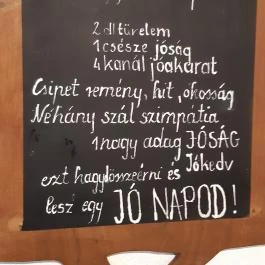 2 dl türelem
1 csésze jóság
4 kanál jóakarat
Csipet remény, hit, okosság
Néhány szál szimpátia
1 nagy adag JÓSÁG
ezt hagyd összeérni és Jókedv
lesz egy JÓ NAPOD!